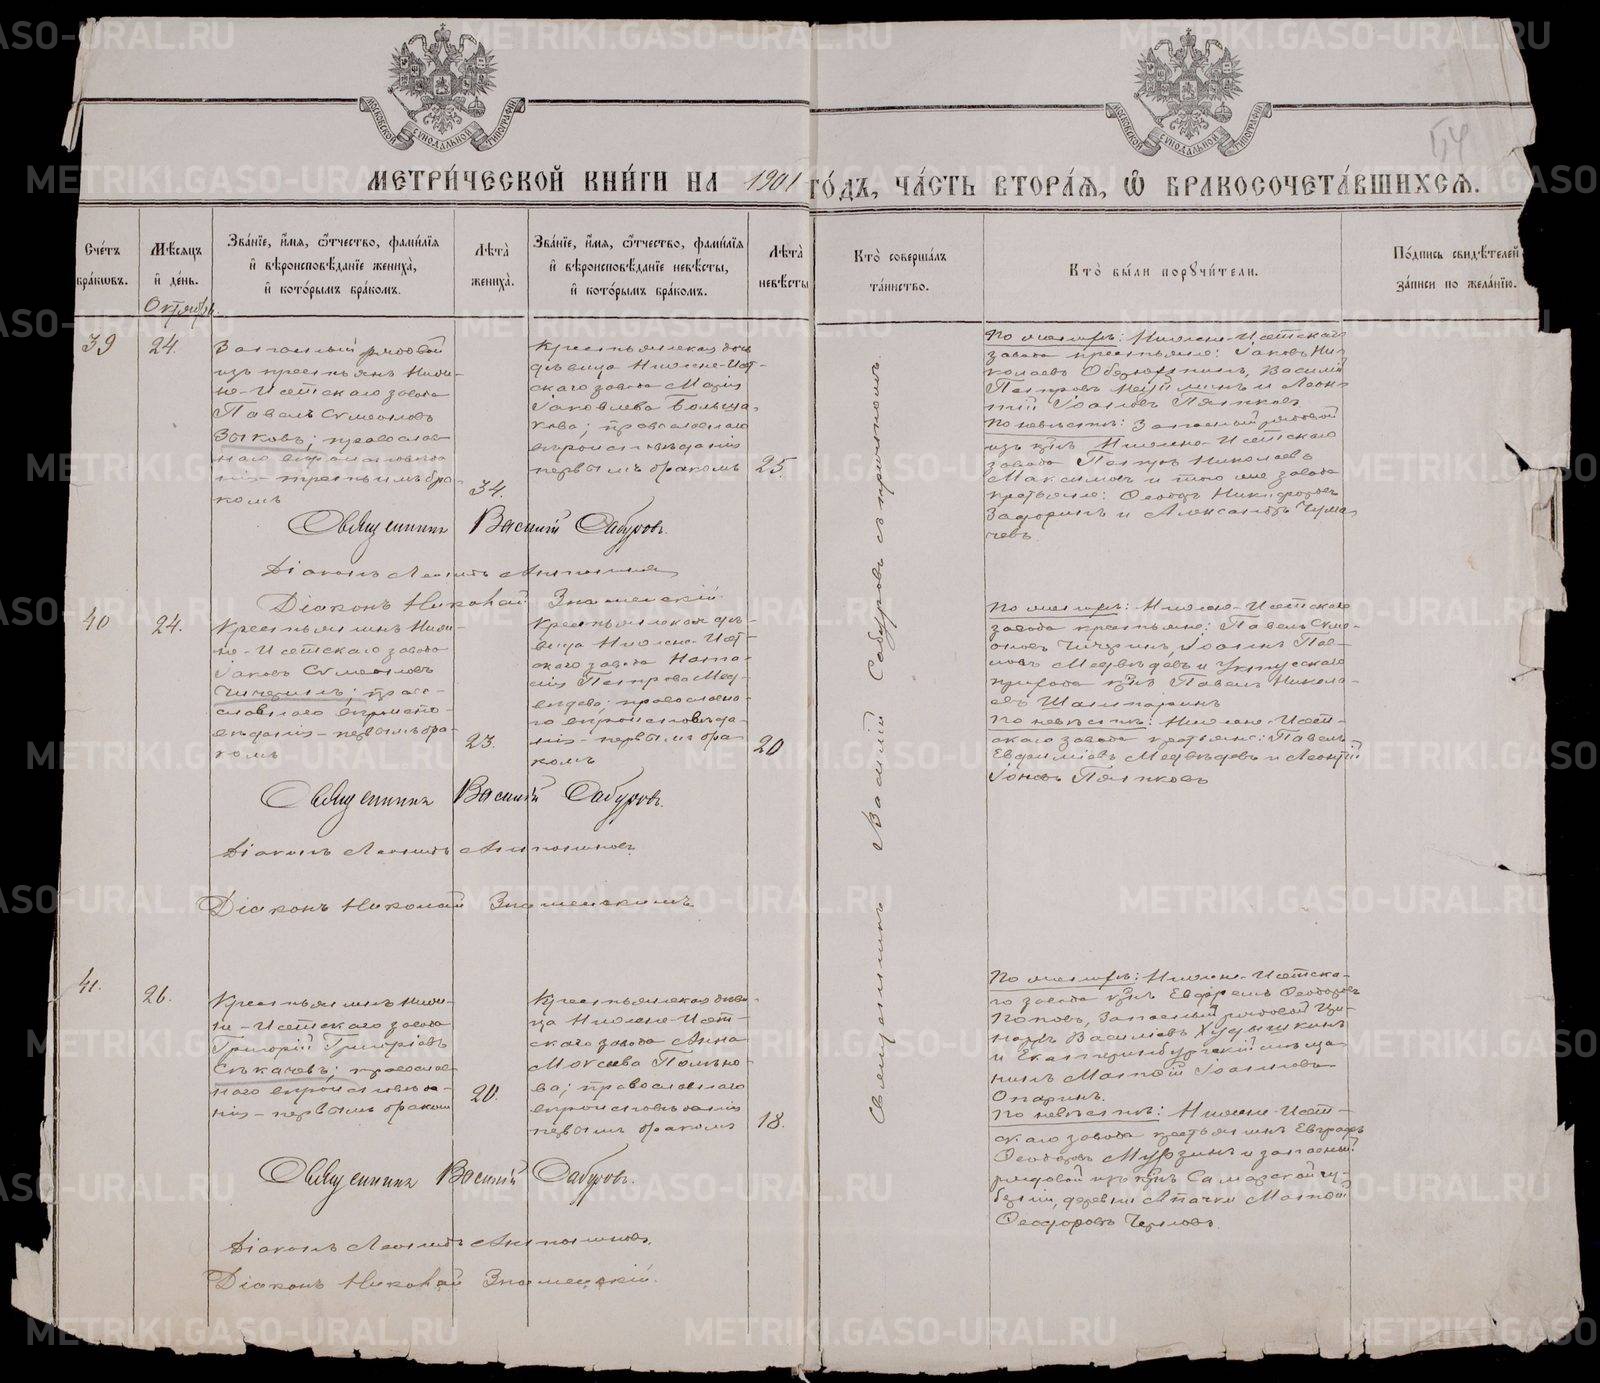 МЕТРИ́ЧЕСКОЙ КНИ́ГИ НА 1901 ГО́ДЪ, ЧА́СТЬ ВТОРА́Ѧ, Ѽ БРАКОСОЧЕТА́ВШИХСѦ.
54
Сче́тъ бра́кωвъ.
Мѣ́сѧцъ и҆ де́нь.
Октябрь.
Зва́нїе, и҆́мѧ, ѻ҆́тчество, фами́лїѧ
и҆ вѣроисповѣ́данїе жениха̀,
и҆ кото́рымъ бра́комъ.
Лѣта̀ жениха̀.
Зва́нїе, и҆́мѧ, ѻ҆́тчество, фами́лїѧ
и҆ вѣроисповѣ́данїе невѣ́сты,
и҆ кото́рымъ бра́комъ.
Лѣта̀ невѣ́сты
Кто̀ соверша́лъ та́инство.
Кто̀ бы́ли порꙋчи́тели.
По́дпись свидѣ́телей
за́писи по жела́нїю.
39
24.
Запасный рядовой
изъ крестьянъ Ниж-
не-Исетскаго завода
Павелъ Симеоновъ
Зыковъ; православ-
наго вѣроисповѣда
нія третьимъ бра-
комъ
34.
Крестьянская дочь
дѣвица Нижне-Исет-
скаго завода Марія
Іаковлева Больша-
кова; православнаго
вѣроисповѣданія
первымъ бракомъ
25.
По жениху: Нижне-Исетскаго
завода крестьяне: Іаковъ Ни-
колаевъ Василій
Петровъ и Леон-
тій Іоановъ Пятковъ
По невѣстѣ: Запасный рядовой
изъ кр Нижне-Исетскаго
завода Петръ Николаевъ
Максимовъ и того же завода
крестьяне: Ѳеодоръ Никифоровъ
и Александръ Чума
чевъ.
Священникъ Василій Сабуровъ.
Діаконъ Леонидъ
Діаконъ Николай Знаменскій.
40
24.
Крестьянинъ Ниж-
не-Исетскаго завода
Іаковъ Симеоновъ
Чичринъ; право-
славнаго вѣроиспо-
вѣданія-первымъ бра-
комъ
23.
Крестьянская дѣ-
вица Нижне-Исет-
скаго завода Ната-
лія Петрова Мед-
вѣдева; православна-
го вѣроисповѣда-
нія-первымъ бра
комъ
20
По жениху: Нижне-Исетскаго
завода крестьяне: Павелъ Симе-
оновъ Чичринъ, Іоаннъ Пав-
ловъ Медвѣдевъ и Уктусскаго
прихода Павелъ Никола-
евъ
По невѣстѣ: Нижне-Исет-
скаго завода крестьяне: Павелъ
Евдокимовъ Медвѣдевъ и Леонтій
Іоновъ Пятковъ
Священникъ Василій Сабуровъ.
Діаконъ Леонидъ
Діаконъ Николай
41.
26.
Крестьянинъ Ниж-
не-Исетскаго завода
Григорій Григоріевъ
Секачевъ; православ-
наго вѣроисповѣда-
нія-первымъ бракомъ
20.
Крестьянская дѣви-
ца Нижне-Исет-
скаго завода Анна
Попко-
ва; православнаго
вѣроисповѣданія
первымъ бракомъ
18.
По жениху: Нижне-Исетска-
го завода Ефремъ Ѳеодоровъ
Поповъ, Запасный рядовой
Васильевъ
и Екатеринбургскій мѣща
нинъ Матѳій Іоанновъ
Опаринъ.
По невѣстѣ: Нижне-Исет-
скаго завода крестьянинъ Евграфъ
Ѳеодоровъ Мурзинъ и запасный
рядовой изъ Самарской гу-
берніи, деревни Матѳій
Ѳеодоровъ
Священникъ Василій Сабуровъ.
Діаконъ Леонидъ
Діаконъ Николай Знаменскій.
Священникъ Василій Сабуровъ съ причтомъ.
METRIKI.GASO-URAL.RU